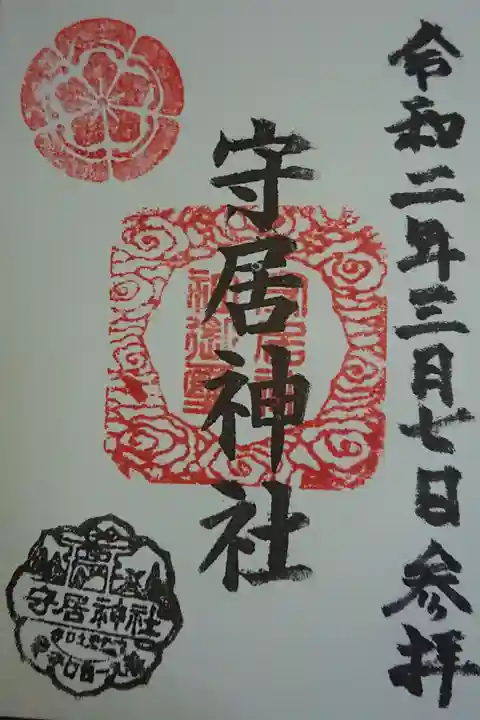 令和二年三月七日参拝
守居神社
守居神社